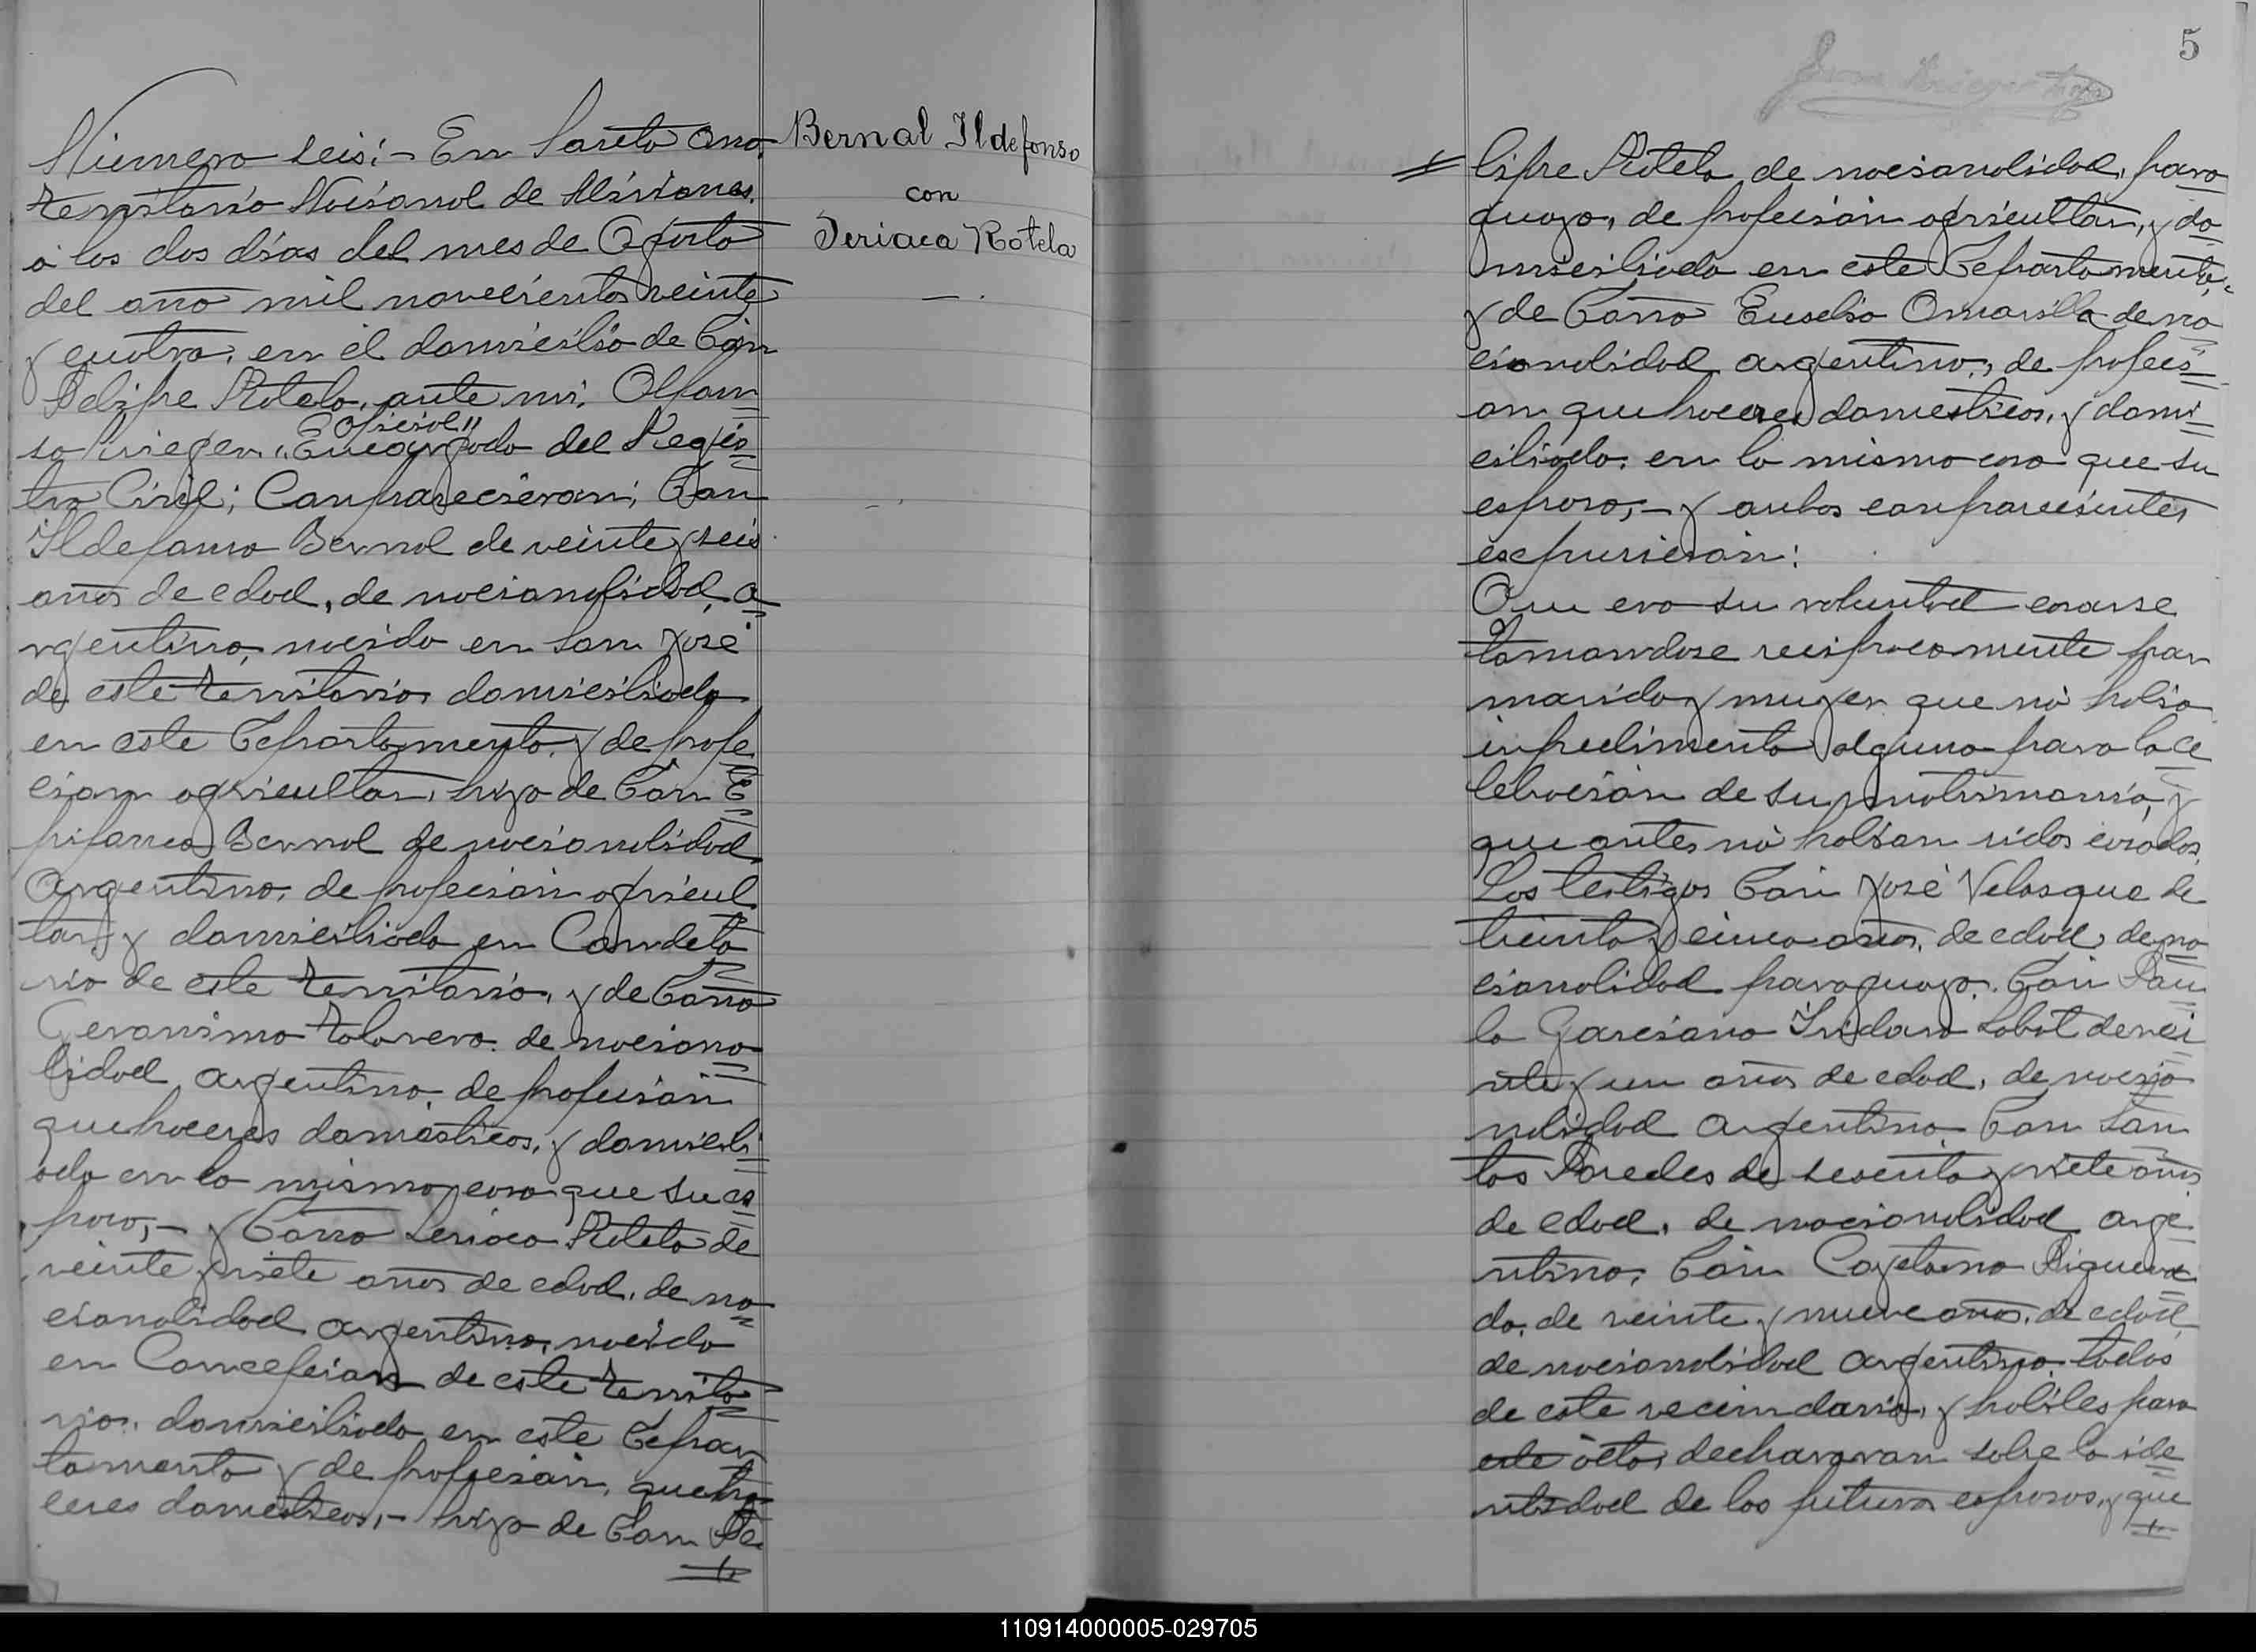 Número seis:- En Santa Ana
territorio Nacional de Misiones.
á los dos días del mes de Agosto
del año mil novecientos veinte
y cuatro, en el domicilio de Don
Felipe Rotela, ante mi. Alfon
so Krieger, "Oficial" Encargado del Regis
tro Civil; Comparecieron; Don
Ildefonso Bernal de veinte y seis
años de edad, de nacionalidad, a
rgentino, nacido en San José
de este territorio, domiciliado
en este Departamento. y de profe
cion agricultor, hijo de Don E
pifanio Bernal de nacionalidad
Argentino, de profecion agricul
tor, y domiciliado en Candela
ria de este territorio, y de Doña
Geronima Talavera de naciona
lidad argentina, de profesion
quehaceres domesticos, y domicili
ada en la misma casa que su es
poso,- y Doña Seriaca Rotela de
veinte y siete años de edad, de na
cionalidad argentina, nacida
en Concepcion de este territo
rio, domiciliada en este Depar
tamento y de profecion, queha
ceres domesticos,- hija de Don Fe
Bernal Ildefonso
con
Seriaca Rotela
5
lipe Rotela de nacionalidad, para
guayo, de profecion agricultor, y do
miciliado en este Departamento,
y de Doña Eusebia Amarilla de na
cionalidad argentina, de profeci
on quehaceres domesticos, y domi
ciliada, en la misma casa que su
esposo,- y ambos comparecientes
expusieron:
Que era su voluntad casarse
tomandose reciprocamente por
marido y muger que no habia
impedimento alguno para la ce
lebracion de su matrimonio, y
que antes no habian sidos casados.
Los testigos Don José Velasque de
treinta y cinco años, de edad, de na
cionalidad paraguayo. Don Pau
lo Garciano Isidoro Lobot de vei
nte y un años de edad, de nacio
nalidad Argentino. Don San
tos Paredes de sesenta y siete años
de edad, de nacionalidad arge
ntino, Don Cayetano Rigueva
do, de veinte y nueve años, de edad
de nacionalidad Argentino, todos
de este vecindario, y habiles para
este acto, decharavan sobre la ide
ntidad de los futuros esposos, y que
110914000005-029705